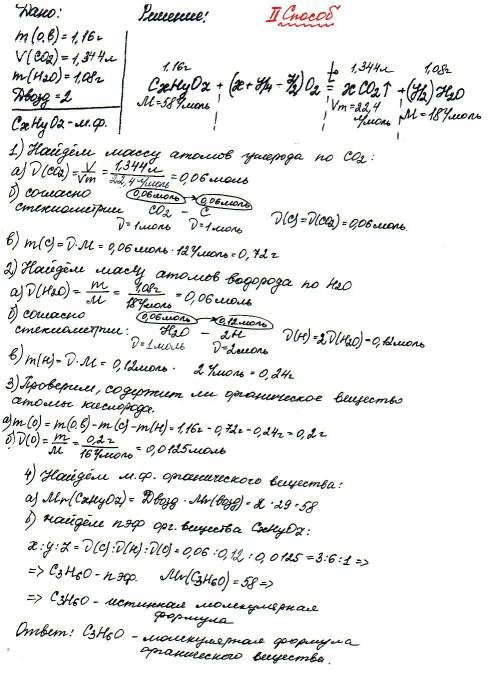 Дано:
Решение!
II Способ
m(о.в)=1,16г
V(CO2)=1,344л
m(H2O)=1,08г
Двозд=2
CxHyOz-м.ф.
1,16г
1,344л
1,08г
CxHyOz + (x+y/4-z/2)O2 = xCO2↑ + (y/2)H2O
t°
M=58г/моль
Vm=22,4 л/моль
M=18г/моль
1) Найдём массу атомов углерода по CO2:
а) ν(CO2)=V/Vm=1,344л/22,4л/моль=0,06моль
б) согласно стехиометрии
0,06моль
0,06моль
CO2 - C
ν=1моль ν=1моль
ν(C)=ν(CO2)=0,06моль.
в) m(C)=ν·M=0,06моль·12г/моль=0,72г
2) Найдём массу атомов водорода по H2O
а) ν(H2O)=m/M=1,08г/18г/моль=0,06моль
б) согласно стехиометрии:
0,06моль
0,12моль
H2O - 2H
ν=1моль ν=2моль
ν(H)=2ν(H2O)=0,12моль
в) m(H)=ν·M=0,12моль· 2г/моль=0,24г
3) Проверим, содержит ли органическое вещество
атомы кислорода.
а) m(O)=m(о.в)-m(C)-m(H)=1,16г-0,72г-0,24г=0,2г
б) ν(O)=m/M=0,2г/16г/моль=0,0125моль
4) Найдём м.ф. органического вещества:
а) Mr(CxHyOz)=Двозд·Mr(возд)=2·29=58
б) найдём пэф орг. вещества CxHyOz:
x:y:z=ν(C):ν(H):ν(O)=0,06:0,12:0,0125=3:6:1=>
=> C3H6O-пэф. Mr(C3H6O)=58=>
=> C3H6O-истинная молекулярная
формула
Ответ: C3H6O-молекулярная формула
органического вещества.